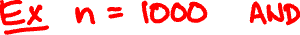 Ex n = 1000 AND